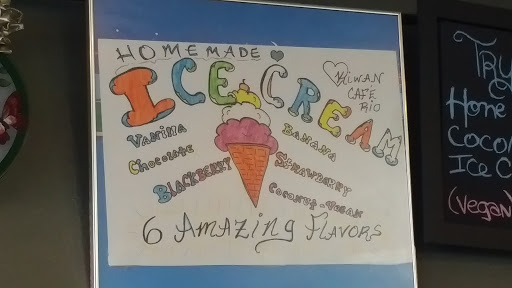 HOMEMADE
ICE CREAM
KIWAN
CAFÉ
RIO
VANILLA
Chocolate
BlACKBERRY
BANANA
STRAWBERRY
Coconut-Vegan
6 AMAZING FLAVORS
TRY
Home
Coco
Ice C
(vegan)